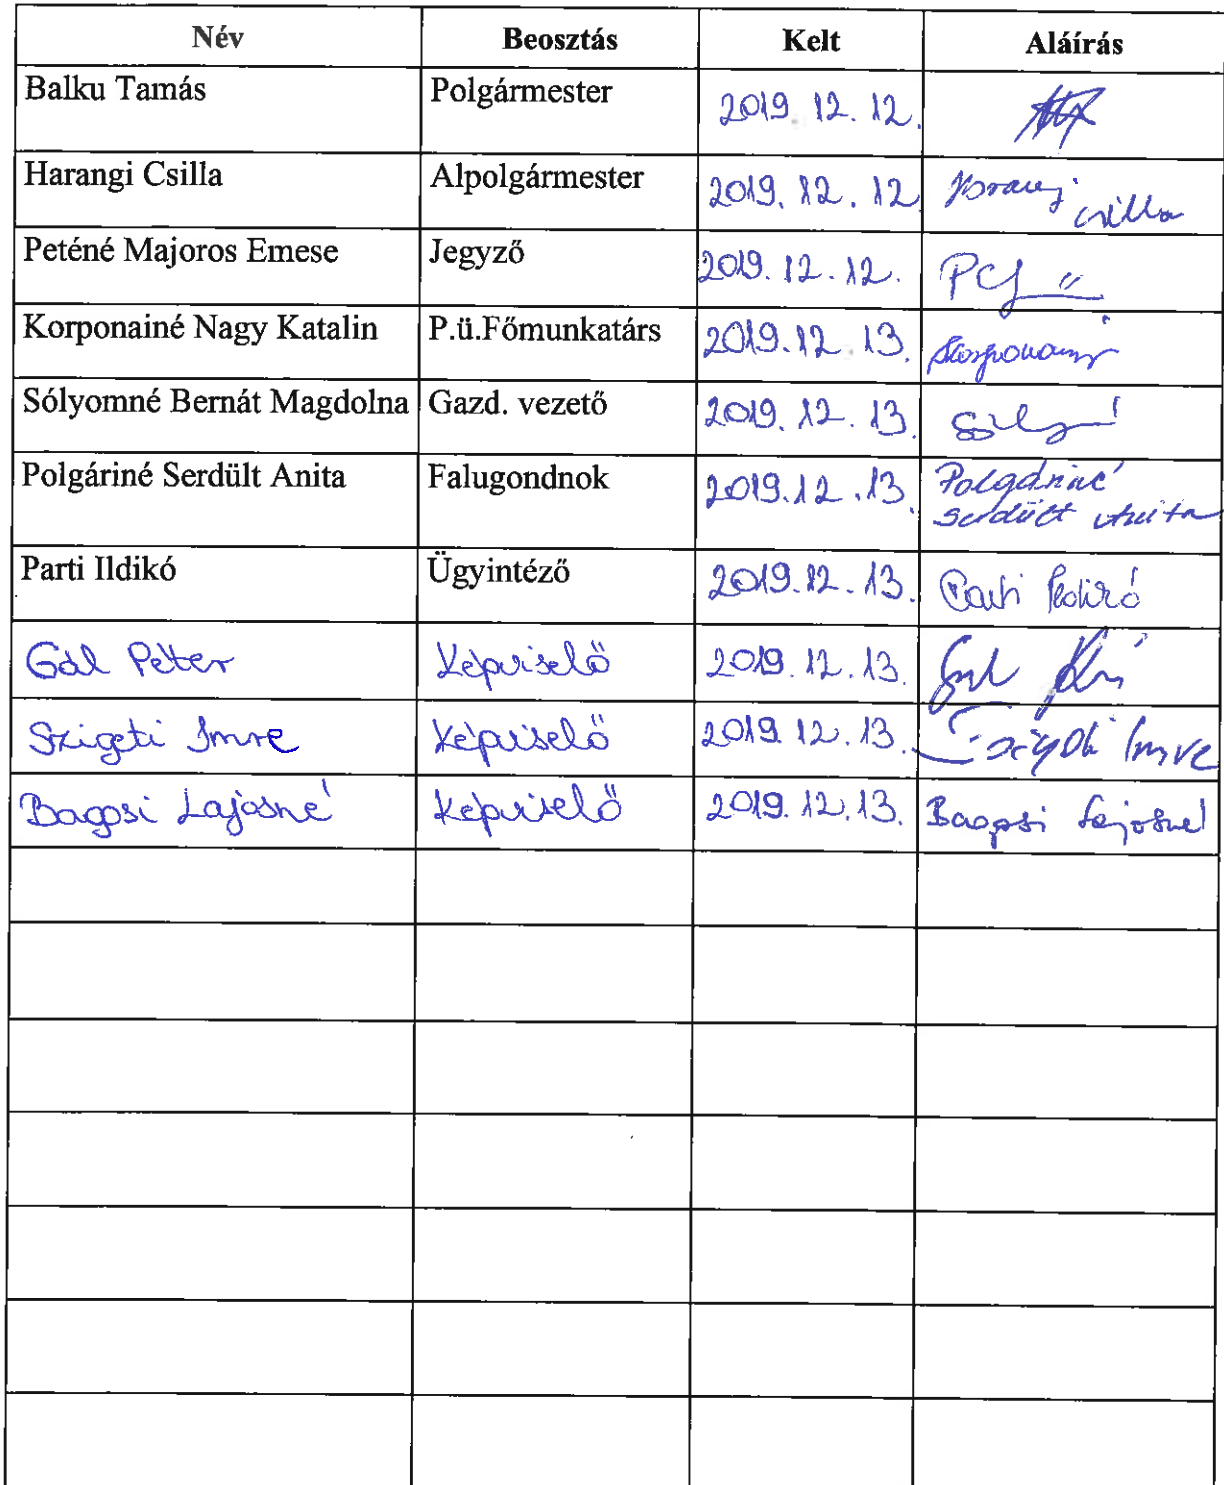 Név Beosztás Kelt Aláírás
Balku Tamás Polgármester 2019. 12. 12.
Harangi Csilla Alpolgármester 2019. 12. 12 Csilla
Peténé Majoros Emese Jegyző 2019. 12. 12.
Korponainé Nagy Katalin P.ü.Főmunkatárs 2019. 12. 13.
Sólyomné Bernát Magdolna Gazd. vezető 2019. 12. 13.
Polgáriné Serdült Anita Falugondnok 2019. 12. 13. Polgáriné
Serdült Anita
Parti Ildikó Ügyintéző 2019. 12. 13. Parti Ildikó
Gál Péter Képviselő 2019. 12. 13. Gál
Szigeti Imre Képviselő 2019. 12. 13. Szigeti Imre
Bagosi Lajosné Képviselő 2019. 12. 13. Bagosi Lajosné